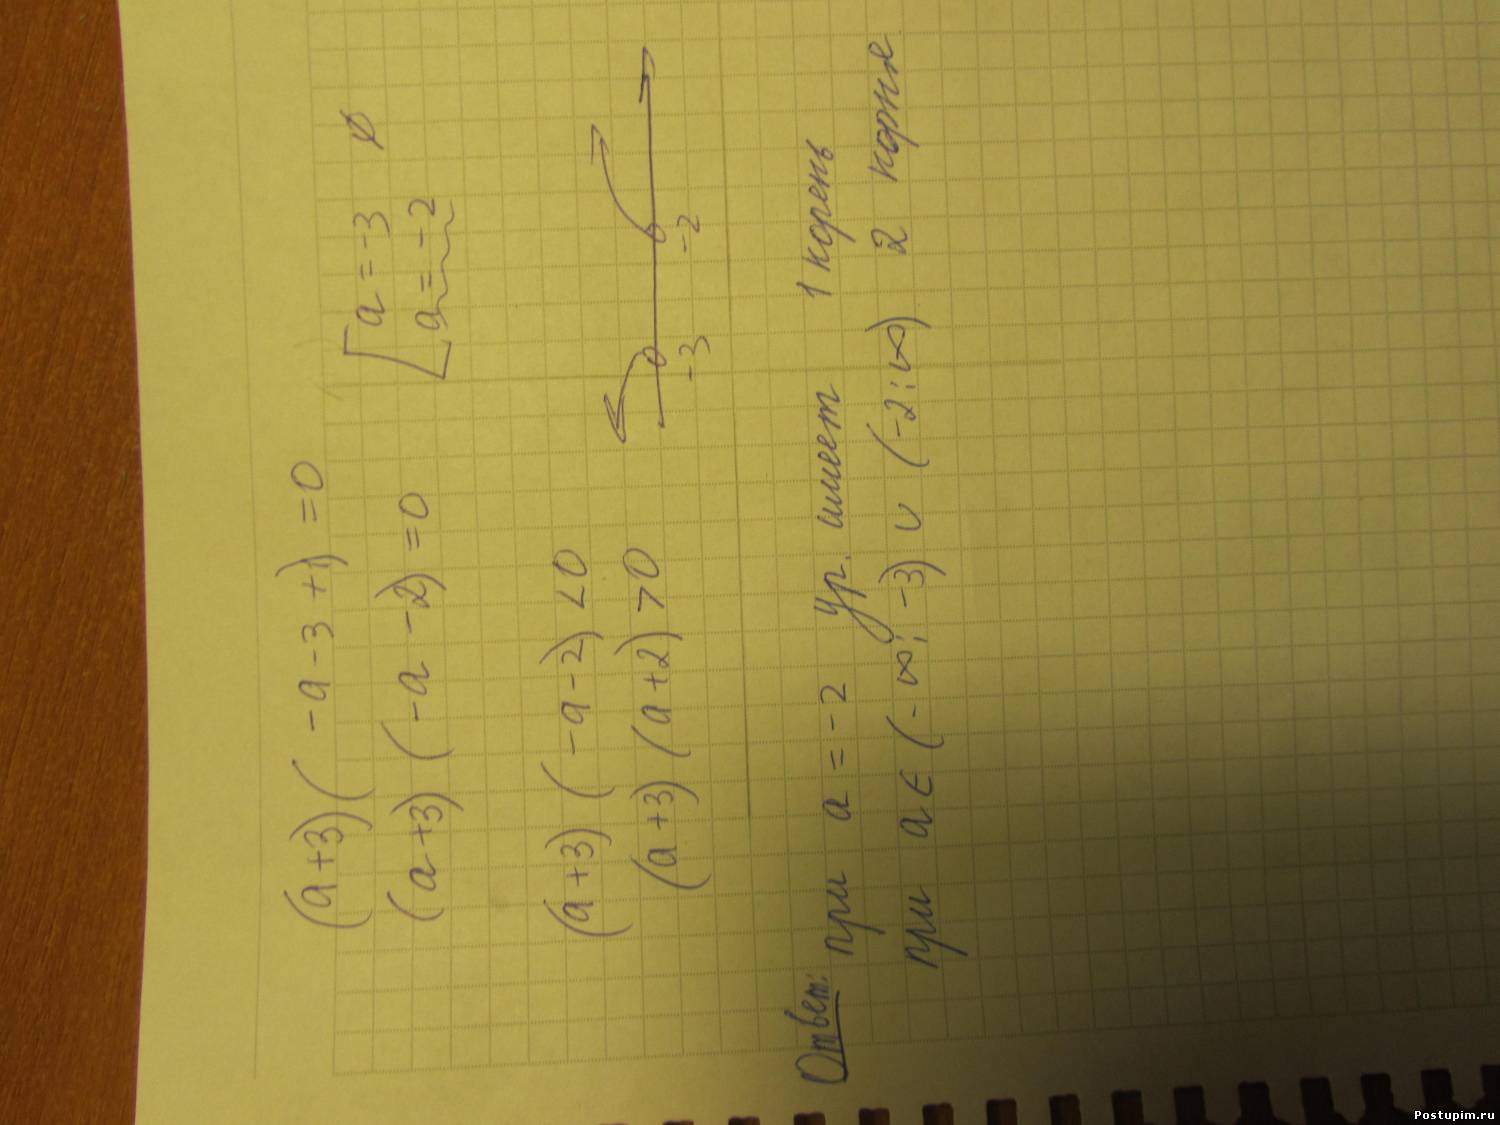 (a+3)(-a-3+1)=0
(a+3)(-a-2)=0
[a=-3 ∅
a=-2
(a+3)(-a-2)<0
(a+3)(a+2)>0
-3 -2
Ответ: при a=-2 Ур. имеет 1 корень
при a∈(-∞;-3)∪(-2;∞) 2 корня
Postupim.ru